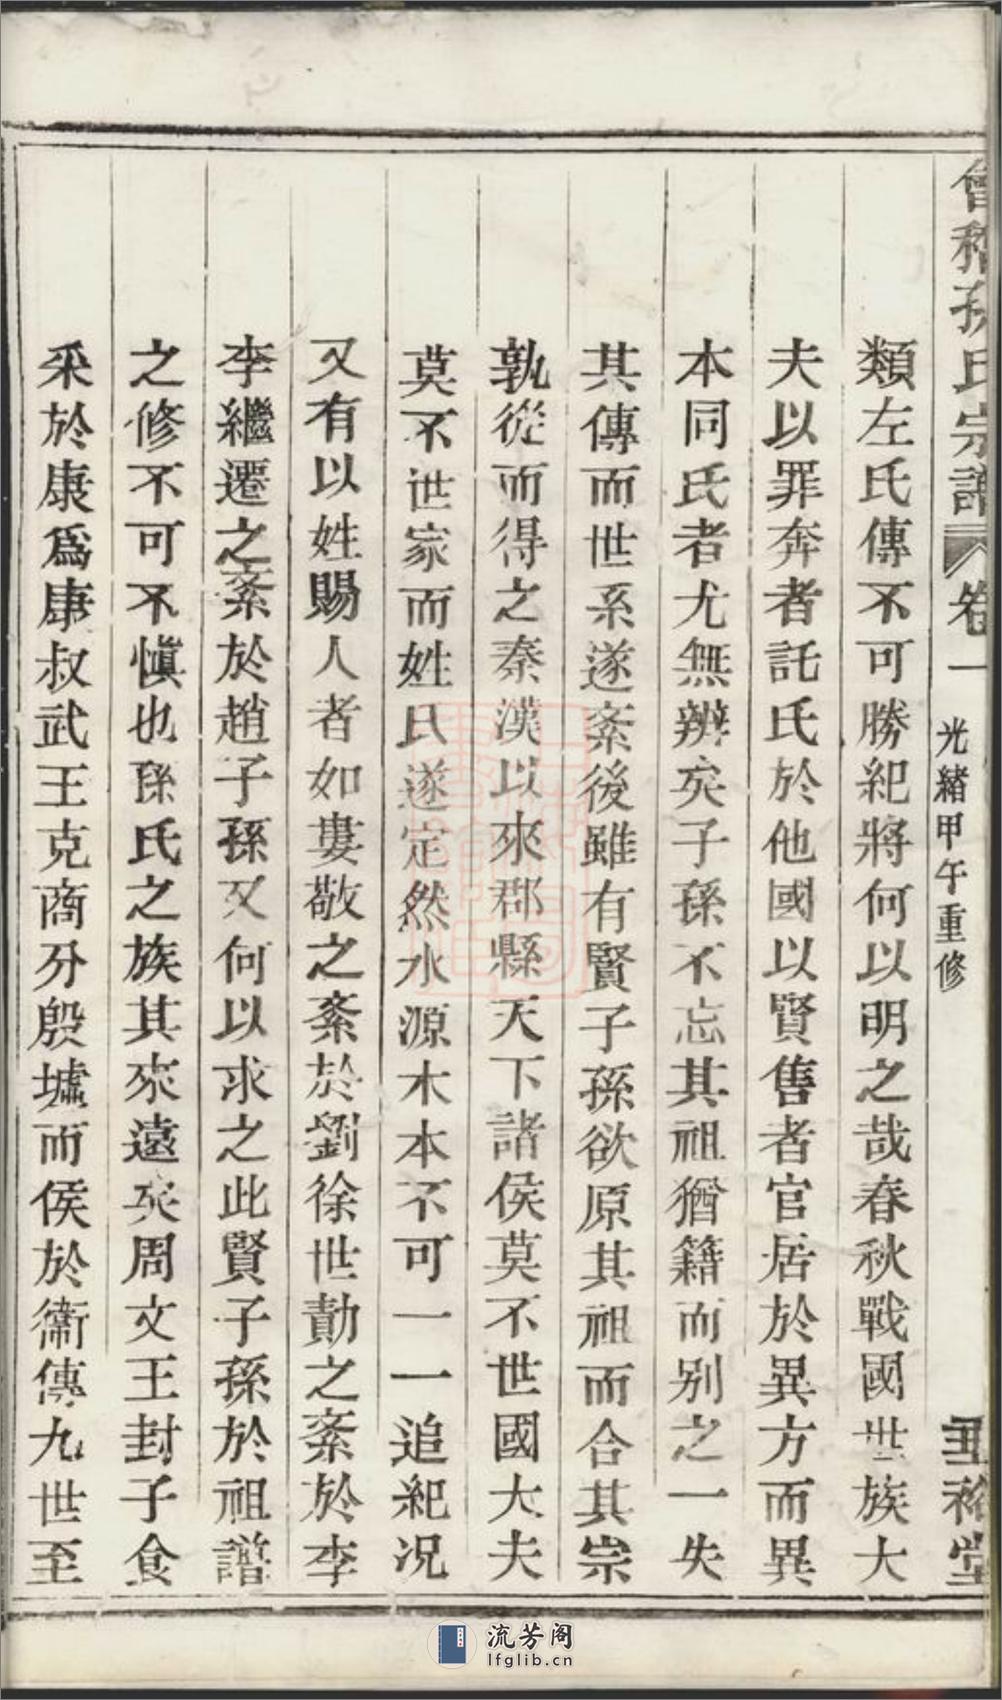 會稽孫氏宗譜 卷一 光緒甲午重修 垂裕堂
類左氏傳不可勝紀將何以明之哉春秋戰國世族大
夫以罪奔者託氏於他國以賢售者官居於異方而異
本同氏者尤無辨矣子孫不忘其祖猶籍而別之一失
其傳而世系遂紊後雖有賢子孫欲原其祖而合其宗
孰從而得之秦漢以來郡縣天下諸侯莫不世國大夫
莫不世家而姓氏遂定然水源木本不可一一追紀况
又有以姓賜人者如婁敬之紊於劉徐世勣之紊於李
李繼遷之紊於趙子孫又何以求之此賢子孫於祖譜
之修不可不慎也孫氏之族其來遠矣周文王封子食
采於康爲康叔武王克商分殷墟而侯於衞傳九世至
流芳阁
lfglib.cn